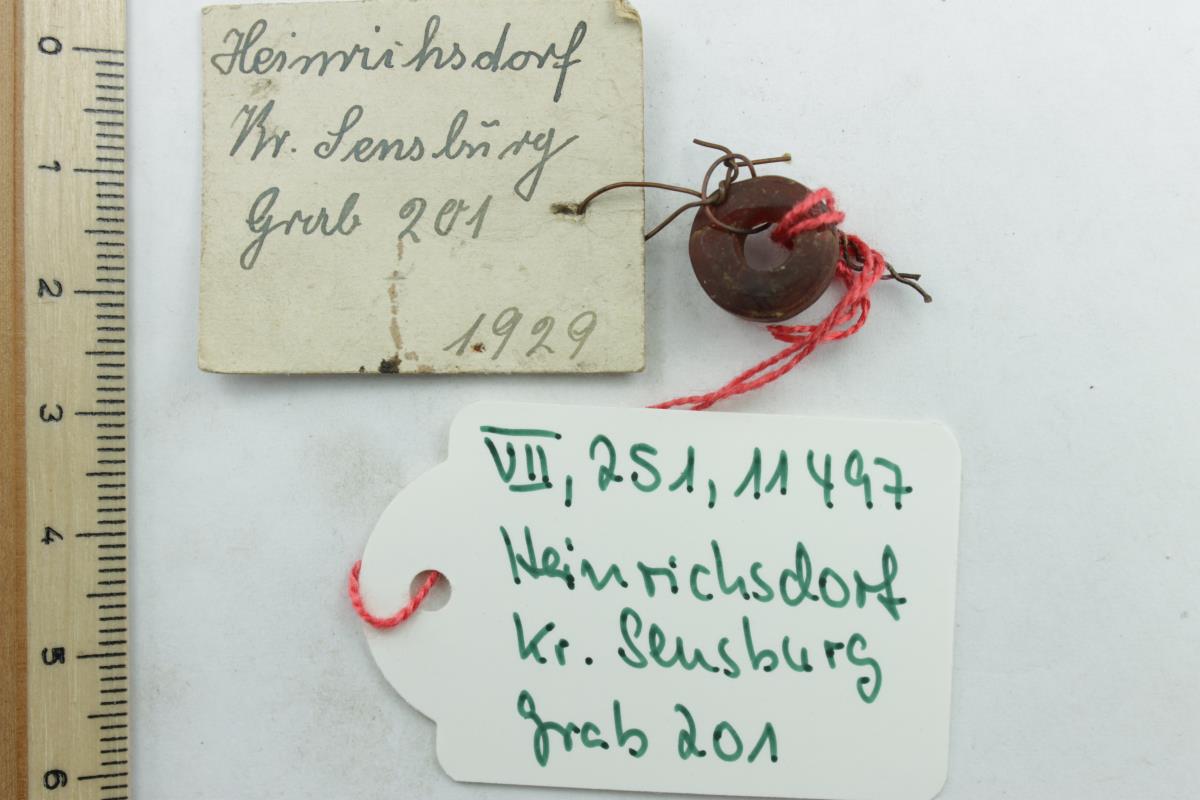 Heinrichsdorf
Kr. Sensbŭrg
Grab 201
1929
VII, 251, 11497
Heinrichsdorf
Kr. Sensburg
Grab 201
0
1
2
3
4
5
6